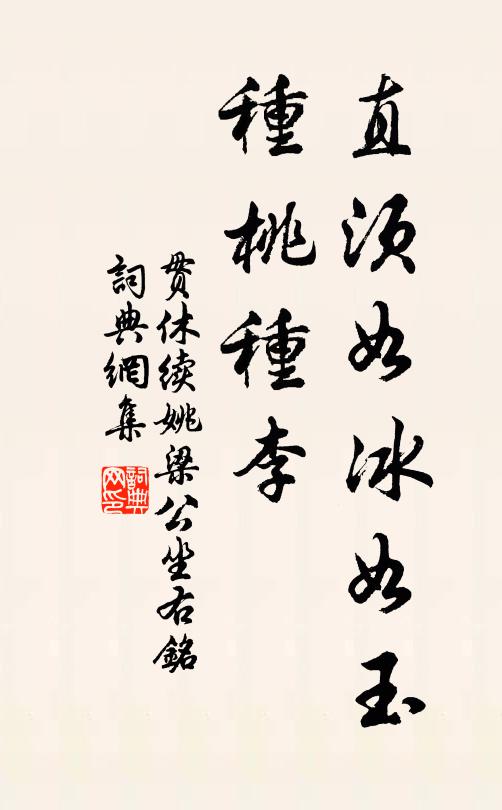 直須如冰如玉
種桃種李
貫休续姚梁公坐右銘
詞典網集
詞典网印